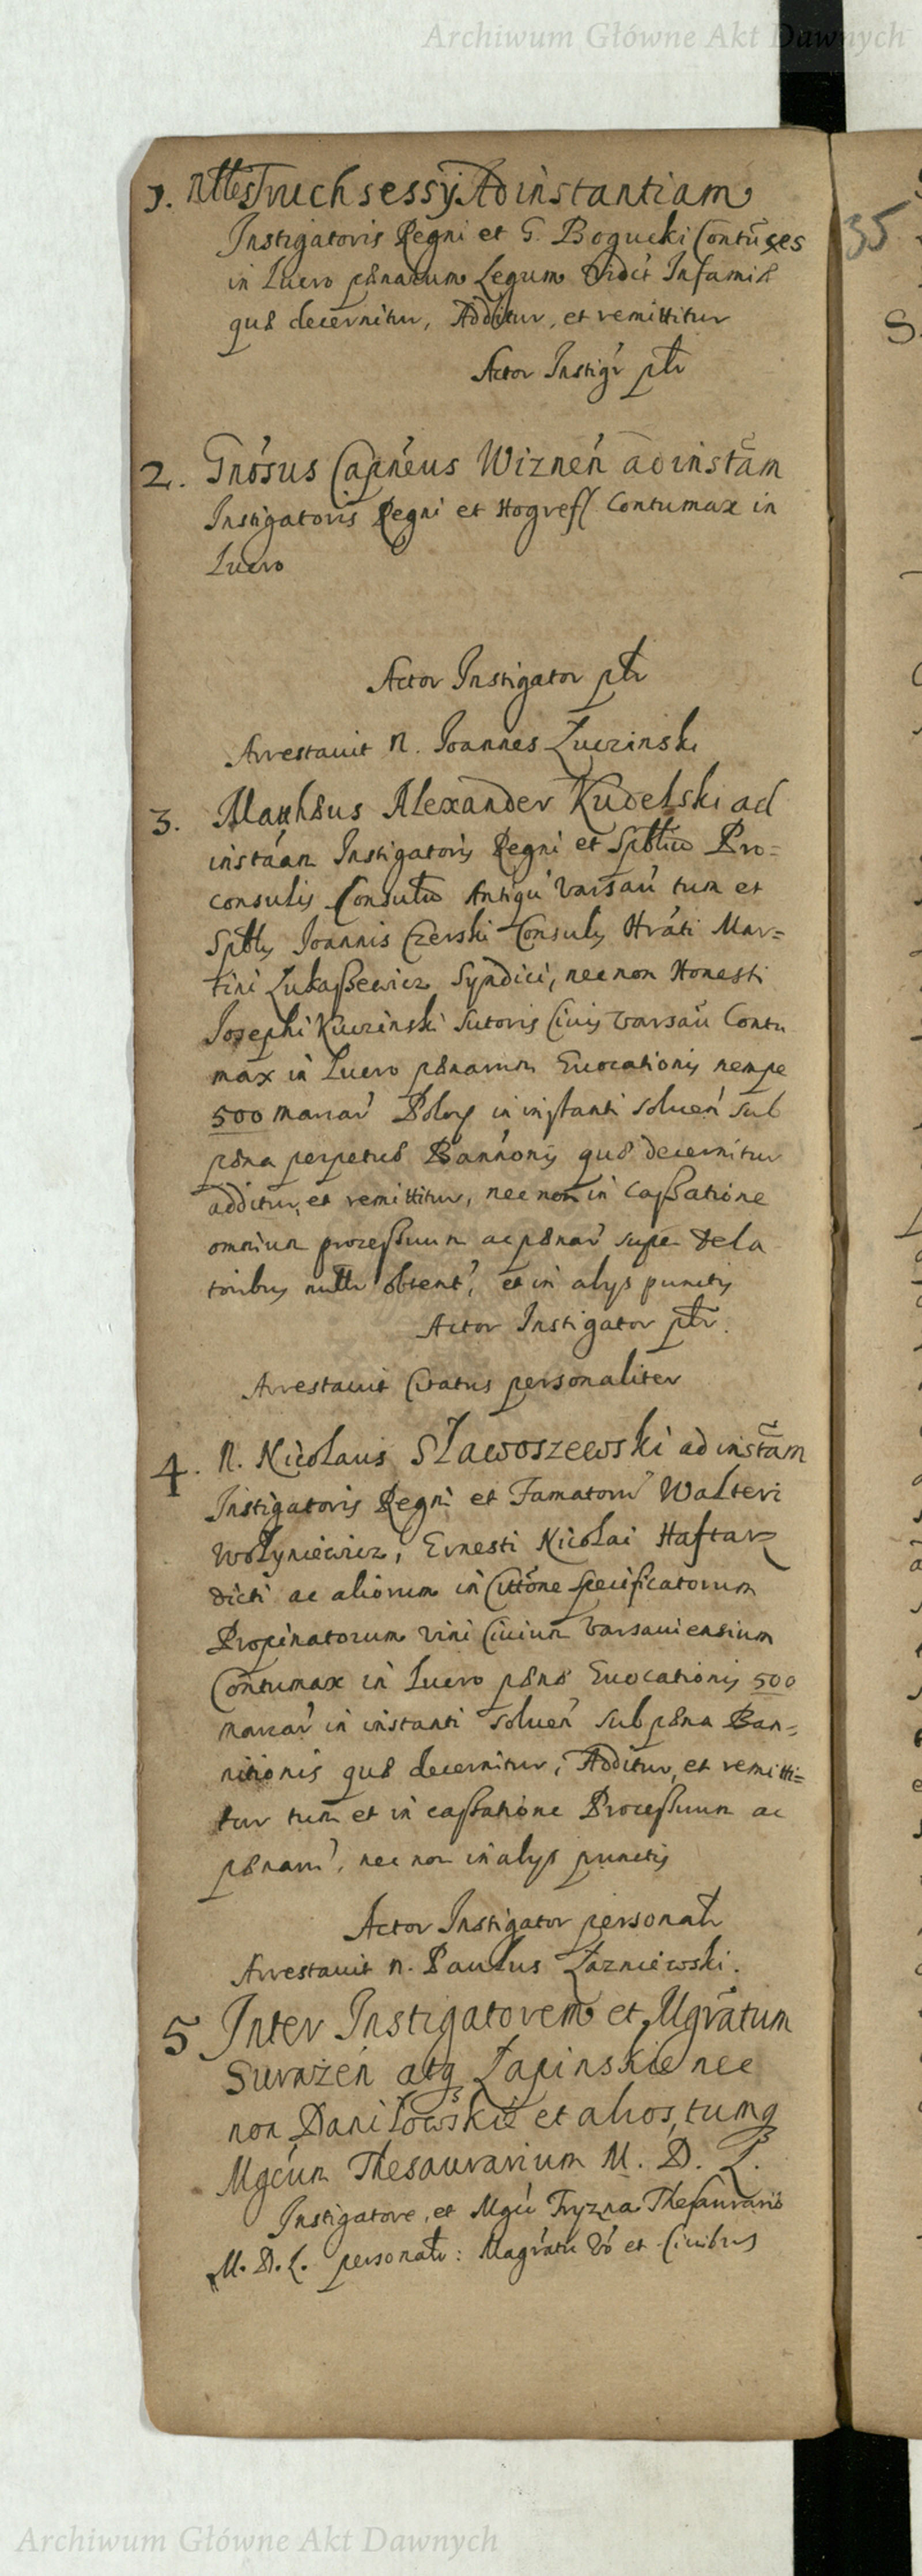 Archiwum Główne Akt Dawnych
1. Nttes Truchsessy Ad instantiam
Instigatoris Regni et G. Bogucki Contūces
in Lucro pænarum Legum Videt Infamiæ
quæ decernitur, Additur, et remittitur
Actor Instigr ptr
35
2. Gnosus Capneus Wiznen ad instām
Instigatoris Regni et Hogreff Contumax in
Lucro
Actor Instigator ptr
Arrestauit N. Joannes Łuczinski
3. Matthæus Alexander Kudelski ad
instaan Instigatoris Regni et Spttiu Pro=
consulis Consulu Antiqu Varsau tum et
Sptts Joannis Czerski Consulis Hrati Mar=
tini Łukaßewicz Syndici, nec non Honesti
Josephi Kuczinski Sutoris Ciuis Varsau Contu
max in Lucro pænarum Euocationis nempe
500 marcar Polon in instanti soluen sub
pæna perpetuæ Bannonis quæ decernitur
additur, et remittitur, nec non in caßatione
omnium proceßuum ac pænar super dela
toribus nullr obtent, et in alys punctis
Actor Instigator ptr.
Arrestauit Citatus personaliter
4. N. Nicolaus Sławoszewski ad instām
Instigatoris Regni et Famatoru Walteri
Wołyniewicz, Ernesti Nicolai Haftarz
dicti ac aliorum in Cittone specificatorum
Propinatorum vini Ciuium Varsauiensium
Contumax in Lucro pænæ Euocationis 500
marcar in instanti soluen sub pæna Ban=
nitionis quæ decernitur, Additur, et remitti=
tur tum et in caßatione Proceßuum ac
pænaru, nec non in alys punctis
Actor Instigator personatr
Arrestauit N. Paulus Łazniewski.
5 Inter Instigatorem et Mgrātum
Surażen atq Łapinskie nec
non Daniłowskie et alios, tumq
Mgcum Thesaurarium M. D. L.
Instigatore, et Mgcu Tryzna Thesaurario
M. D. L. personatr: Magratu Vo et Ciuibus
Archiwum Główne Akt Dawnych